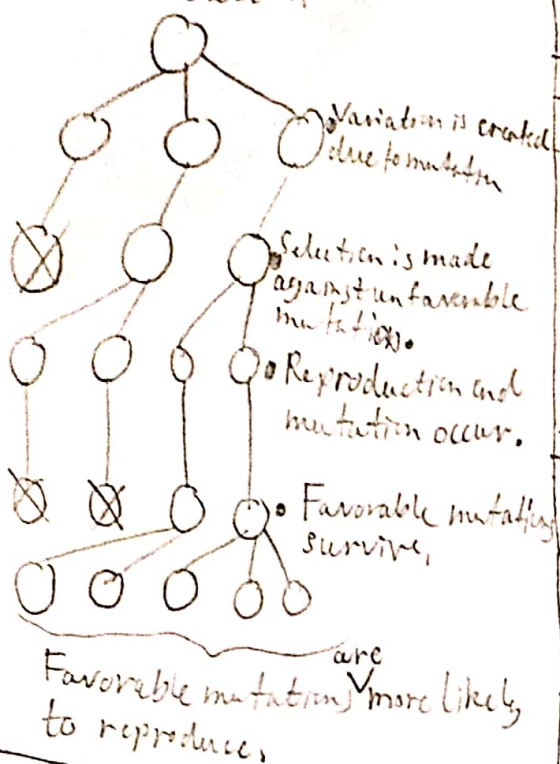 Variation is created
due to mutation
Selection is made
against unfavorable
mutation.
Reproduction and
mutation occur.
Favorable mutations
survive.
Favorable mutations are more likely
to reproduce.